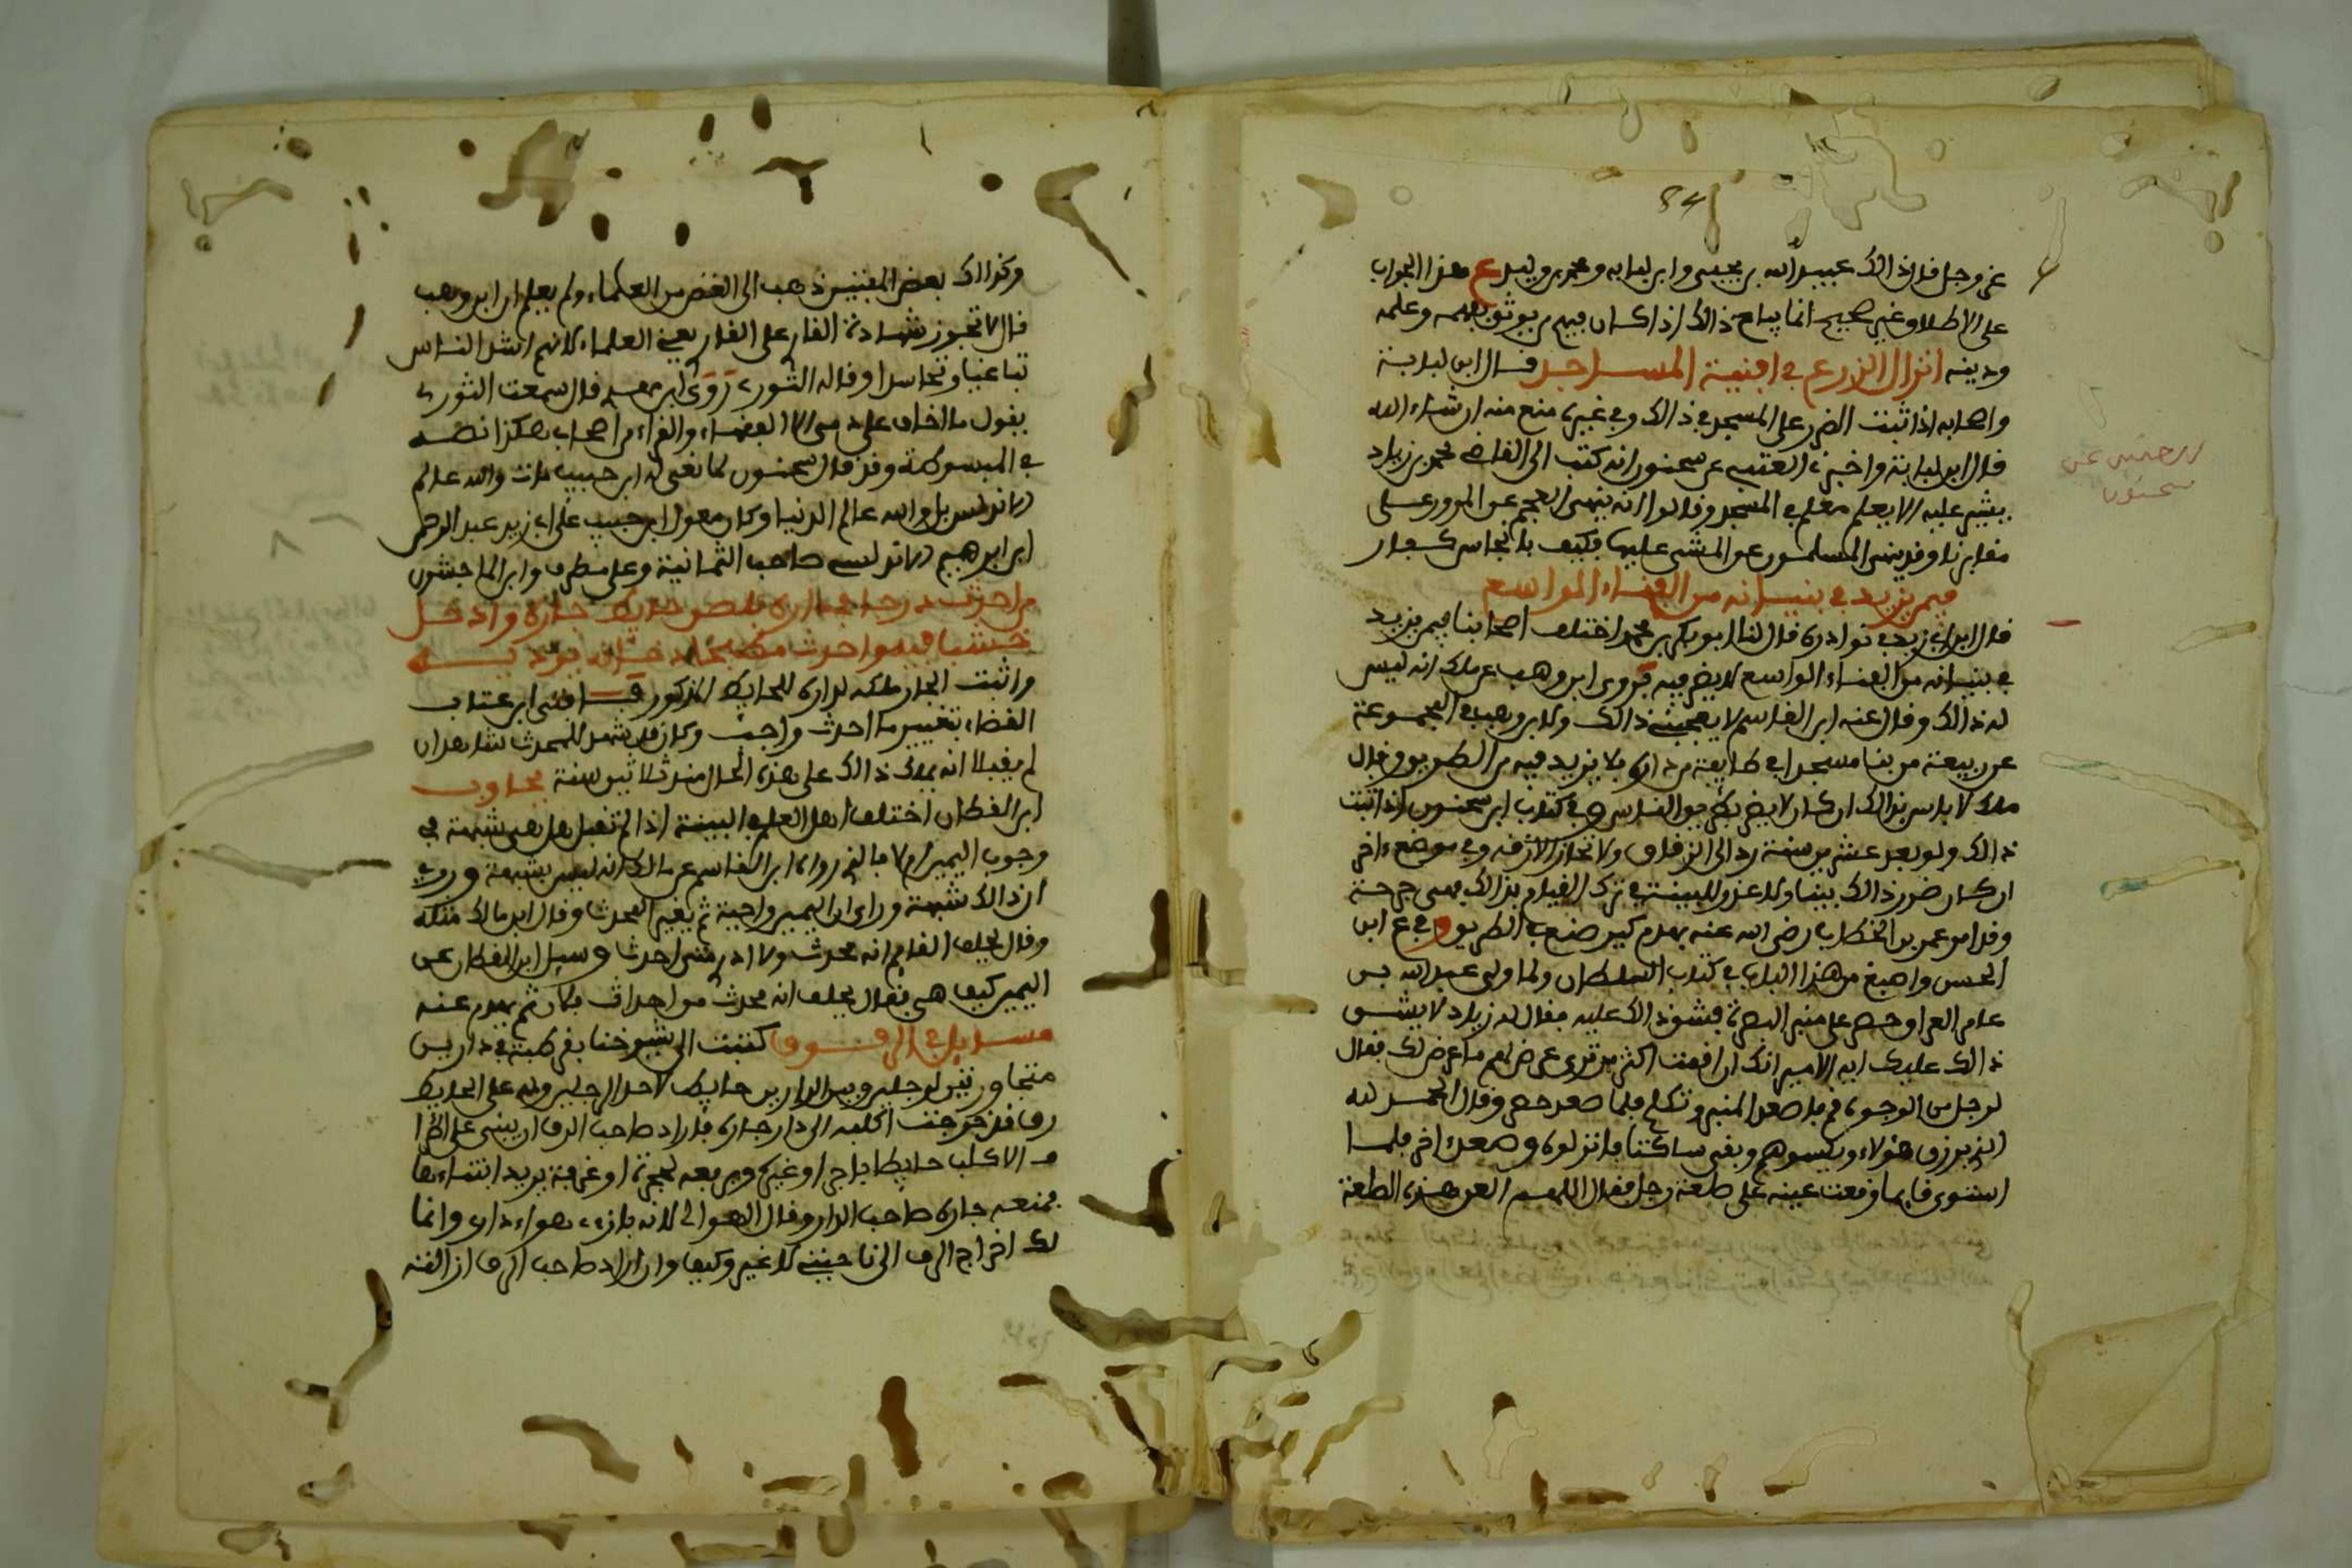 عز وجل قال ذلك عبيد الله بن يحيى وابن لبابه ومحمد بن وليد ع هذا الجواب
على الاطلاق غير صحيح انما يباح ذالك اذا كان فيهم من يوثق بفهمه وعلمه
ودينه انزال الزرع في افنية المساجد قال ابن لبابة
واصحابه اذا ثبت الضرر على المسجد في ذالك وفي غيره منع منه ان شاء الله
قال ابن لبابة واخبرنا العتبي عن سحنون انه كتب الى القاضي محمد بن زياد
يشير عليه الا يعلم معلم في المسجد وقالوا انه ينهى العجم عن المرور على
مقابرنا وقد ينهى المسلمون عن المشي عليها فكيف بانجاس كفار
فيمن يزيد في بنيانه من الفناء الواسع
قال ابن ابي زيد في نوادره قال لنا ابو بكر بن محمد اختلف اصحابنا فيمن يزيد
في بنيانه من الفناء الواسع لا يضر فيه فروى ابن وهب عن ملك انه ليس
له ذالك وقال عنه ابن القاسم لا يعجبني ذالك ولابن وهب في المجموعة
عن ربيعة من بنا مسجدا في طايفة من داره فلا يزيد فيه من الطريق وقال
ملك لا باس بذالك ان كان لا يضر بطريق الناس وفي كتاب ابن سحنون اذا ثبت
ذالك ولو بعد عشرين سنة رد الى الزقاق ولا تحاز الازقه وفي موضع اخر
ان كان ضرر ذالك بينا ولا عذر للبينة في ترك القيام بذالك فهي جرحة
وقد امر عمر بن الخطاب رضي الله عنه بهدم كير صنع في الطريق وفي ع ابن
الحسن واصبغ من هذا الباب في كتاب السلطان ولما ولي عبد الله بن
عامر العراق حصر على منبر البصرة فشق ذالك عليه فقال له زياد لا يشق
ذالك عليك ايها الامير انك ان اقمت اكثر من ترى عرض لهم ما عرض لك فقال
لرجل من الوجوه قم فاصعد المنبر وتكلم فلما صعد حصر وقال الحمد لله
الذي يرزق هؤلاء ويكسوهم وبقي ساكتا فانزلوه وصعد اخر فلما
استوى قايما وقعت عينه على صلعة رجل فقال اللهم العن هذه الصلعة
سحنون
وكذالك بعض المفتين ذهب الى الغض من العلماء ولم يعلم ان ابن وهب
قال لا تجوز شهادة القار على القار يعني العلماء لانهم اشد الناس
تباغيا وتحاسدا وقاله الثوري روى ابن معبد قال سمعت الثوري
يقول ما اخاف على دمي الا القضاء والقراء من اصحاب هكذا نصه
في المبسوطة وقد قال سحنون لما نعي له ابن حبيب مات والله عالم
الاندلس بل والله عالم الدنيا وكان معول ابن حبيب على ابي زيد عبد الرحمن
ابن ابراهيم الاندلسي صاحب الثمانية وعلى مطرف وابن الماجشون
من احدث درجا في داره فلصق حايط جاره وادخل
خشبا فيه واحدث
واثبت الجار ملكه لداره للحايط المذكور فافتى ابن عتاب
القضاء بتغيير ما احدث واجب وكان قد شهد للمحدث شاهدان
لم يقبلا انه يملك ذالك على هذه الحال منذ ثلاثين سنة فجاوب
ابن القطان اختلف اهل العلم في البينة اذا لم تقبل هل هي شبهة في
وجوب اليمين ام لا فالذي رواه ابن القاسم عن مالك انه ليس بشبهة وروي
ان ذالك شبهة وراى ان اليمين واجبة ثم يغير المحدث وقال ابن مالك مثله
وقال يحلف القايم انه محدث ولا ادري متى احدث وسيل ابن القطان عن
اليمين كيف هي فقال يحلف انه محدث من احداث فلان ثم يهدم عنه
مسايل في الرفوف كتبت الى شيوخنا بقرطبة في دارين
متجاورتين لرجلين وبين الدارين حايط لاحد الرجلين وله على الحايط
رف قد خرجت اكلبه الى دار جاره فاراد صاحب الرف ان يبني على اطرا
ف الاكلب حايطا باجر او غيره ويرفعه لحجرة او غرفة يريد ابتناءها
فمنعه جاره صاحب الدار وقال الهوا لي لانه بازاء هواء داري وانما
لك اخراج الرف الى ناحيتي لا غير وكيف وان اراد صاحب الرف ازالته